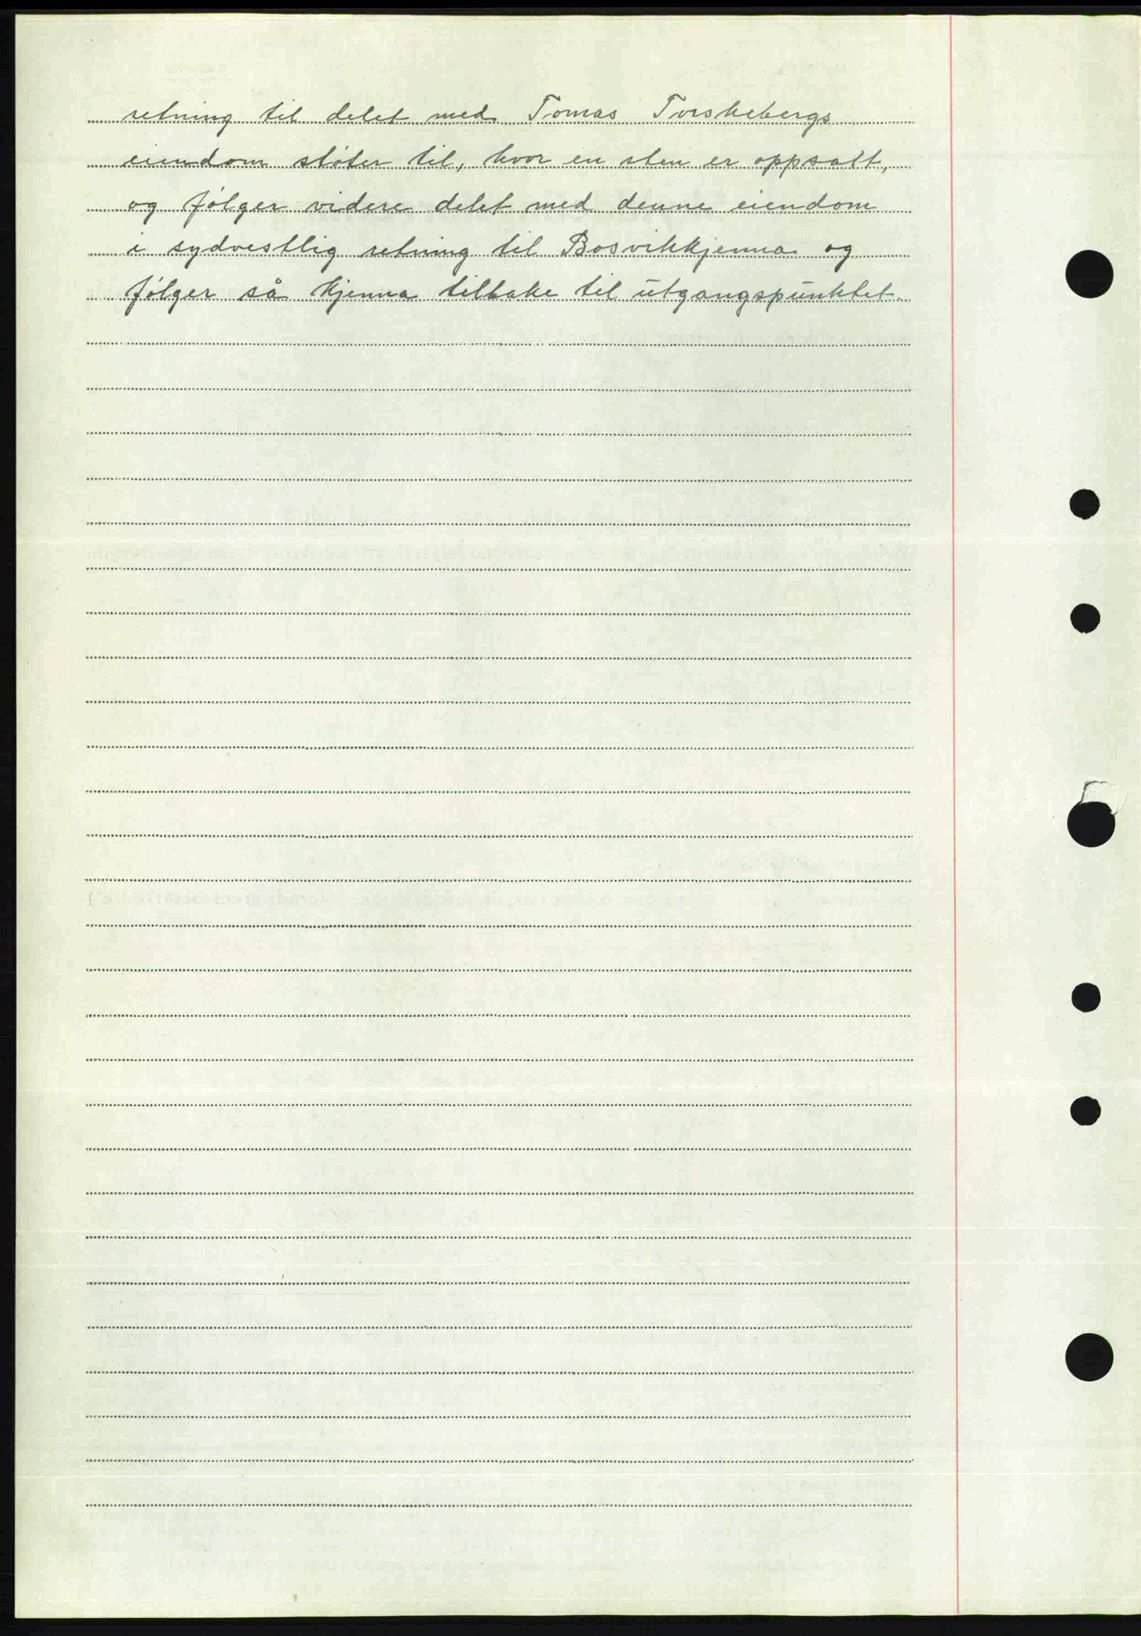 retning til delet med Tomas Torskebergs
eiendom støter til, hvor en sten er oppsatt,
og følger videre delet med denne eiendom
i sydvestlig retning til Bosvikkjenna og
følger så kjenna tilbake til utgangspunktet.